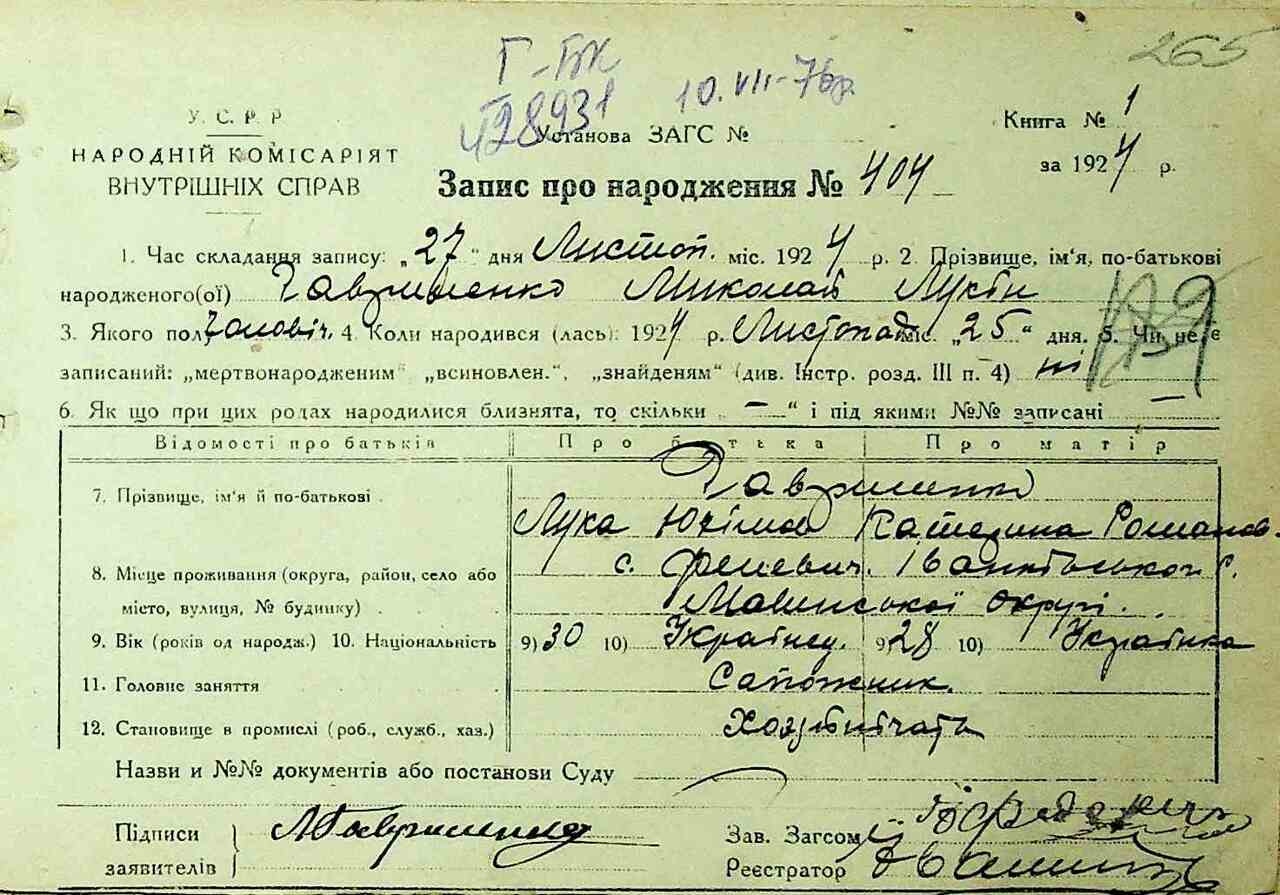 265
Г-БК
428931
10.VII-76р.
У.С.Р.Р
НАРОДНІЙ КОМІСАРІЯТ
ВНУТРІШНІХ СПРАВ
Установа ЗАГС №
Книга № 1
за 1924 р.
Запис про народження № 404
1. Час складання запису: „27" дня Листоп. міс. 1924 р. 2. Прізвище, ім'я, по-батькові
народженого(ої) Гавриленко Миколай Лукін
3. Якого полу Чоловіч. 4. Коли народився (лась): 1924 р. Листопад міс. „25" дня. 5. Чи не є
записаний: „мертвонародженим" „всиновлен.", „знайденям" (див. Інстр. розд. III п. 4) ні
6. Як що при цих родах народилися близнята, то скільки „—" і під якими №№ записані —
Відомості про батьків Про батька Про матір
7. Прізвище, ім'я й по-батькові Гавриленки
Лука Юхімов Катерина Романов.
8. Місце проживання (округа, район, село або с. Феневич. Іванківського р.
місто, вулиця, № будинку) Малинської округі.
9. Вік (років од народж.) 10. Національність 9) 30 10) Українец. 9) 28 10) Українка
11. Головне заняття Сапожник.
12. Становище в промислі (роб., служб., хаз.)
Назви и №№ документів або постанови Суду
Підписи
заявителів
Гавриленко
Зав. Загсом
Реєстратор